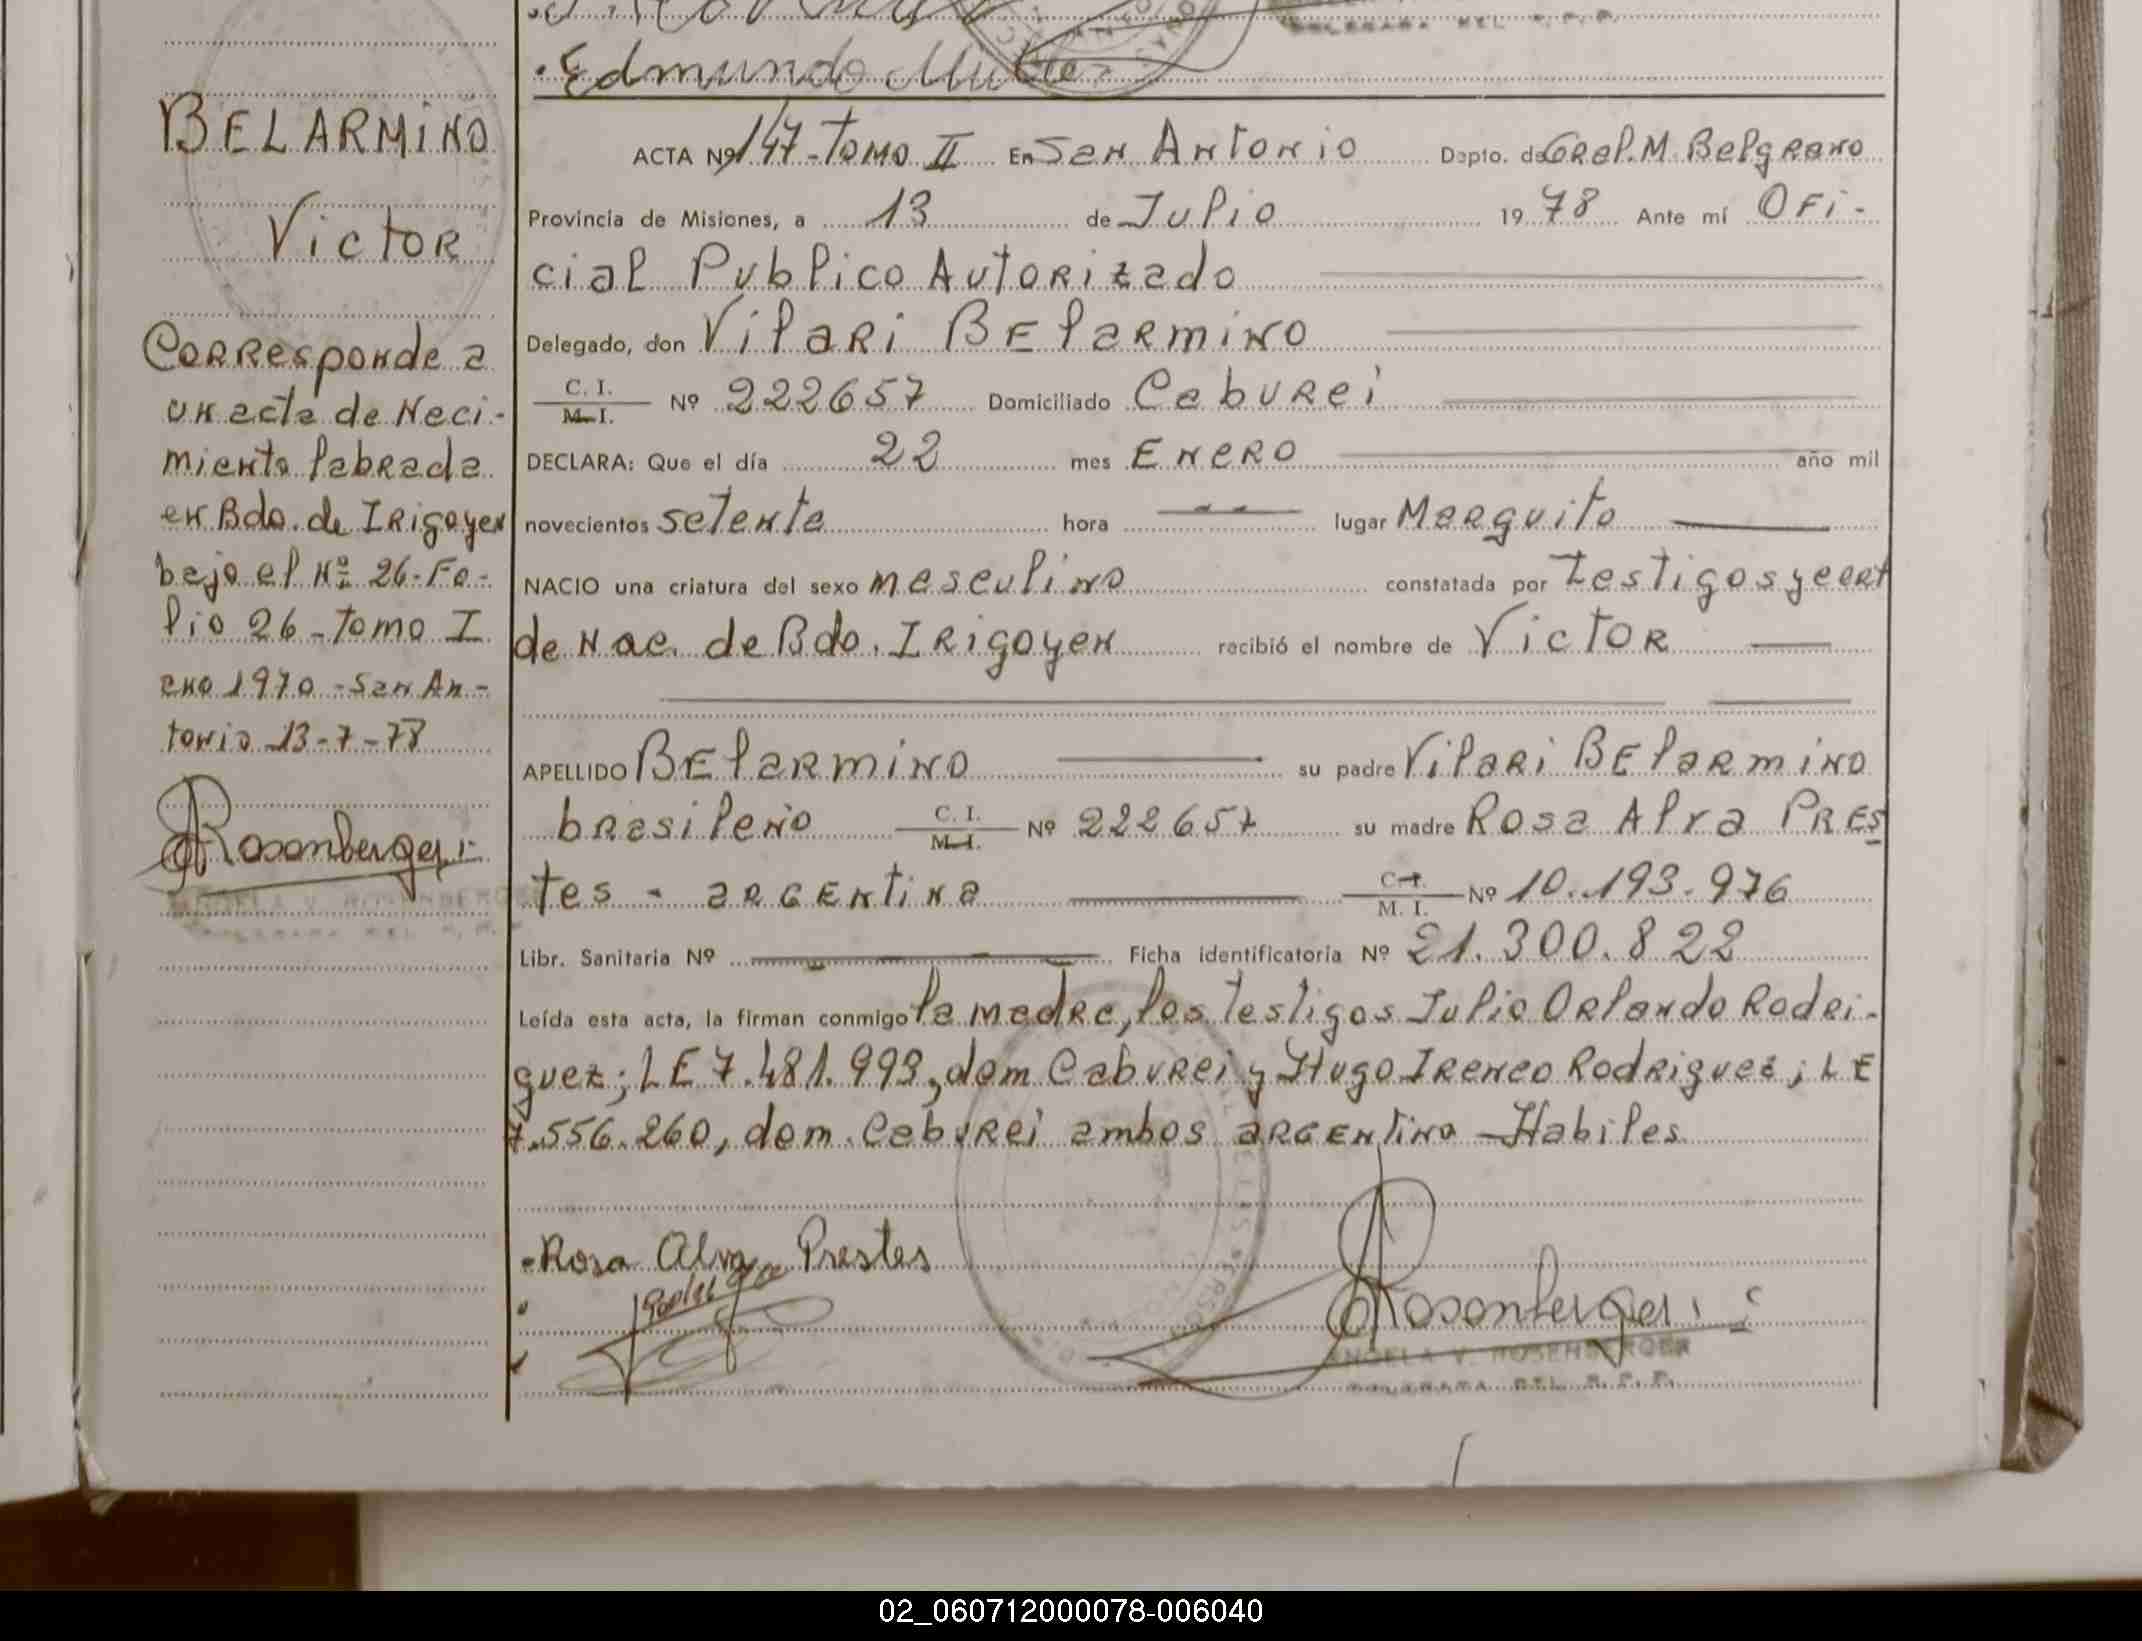 Edmundo
BELARMINO
Victor
Corresponde a
un acta de Naci-
miento labrada
en Bdo. de Irigoyen
bajo el Nº 26-Fo-
lio 26-Tomo I
año 1970-San An-
tonio 13-7-78
Rosenberger
ANGELA V. ROSENBERGER
DELEGADA DEL R.P.P.
ACTA Nº 147-Tomo II En San Antonio Dpto. de Gral. M. Belgrano
Provincia de Misiones, a 13 de Julio 19 78 Ante mí Ofi-
cial Publico Autorizado
Delegado, don Vilari Belarmino
C. I.
M. I. Nº 222657 Domiciliado Caburei
DECLARA: Que el día 22 mes Enero año mil
novecientos setenta hora lugar Marguito
NACIO una criatura del sexo masculino constatada por Testigos y cert
de Nac. de Bdo. Irigoyen recibió el nombre de Victor
APELLIDO Belarmino su padre Vilari Belarmino
brasileño C. I. M. I. Nº 222657 su madre Rosa Alva Pres
tes - argentina C. I. M. I. Nº 10.193.976
Libr. Sanitaria Nº Ficha identificatoria Nº 21.300.822
Leída esta acta, la firman conmigo la madre, los testigos Julio Orlando Rodri-
guez; LE 7.481.993, dom Caburei y Hugo Ireneo Rodriguez; LE
7.556.260, dom. Caburei ambos argentino - Habiles
Rosa Alva Prestes
Rosenberger
ANGELA V. ROSENBERGER
DELEGADA DEL R.P.P.
02_060712000078-006040